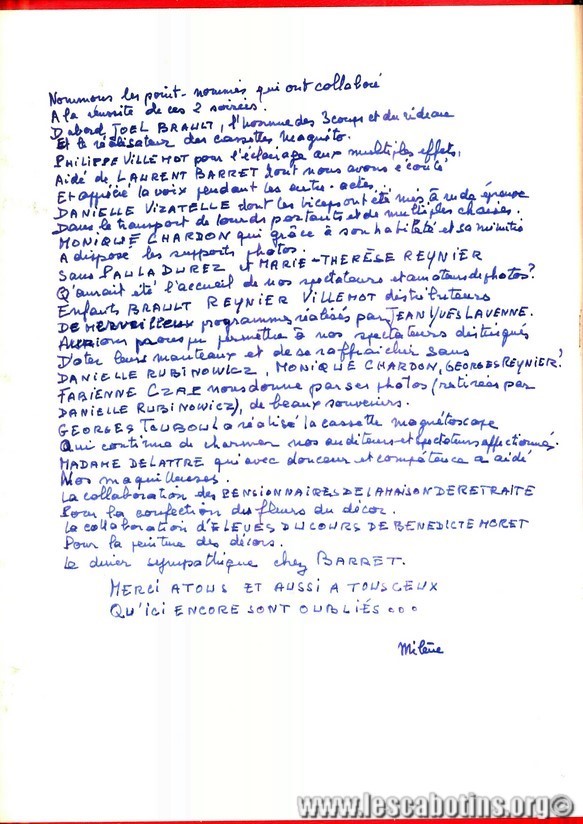 Nommons les point-nommés qui ont collaboré
A la réussite de ces 2 soirées.
D'abord JOEL BRAULT, l'homme des 3 coups et du rideau
Et le réalisateur des cassettes magnéto.
PHILIPPE VILLEMOT pour l'éclairage aux multiples effets,
Aidé de LAURENT BARRET dont nous avons écouté
Et apprécié la voix pendant les entr-actes...
DANIELLE VIZATELLE dont les biceps ont été mis à rude épreuve
Dans le transport de lourds portants et de multiples chaises.
MONIQUE CHARDON qui grâce à son habileté et sa minutie
A disposé les supports photos.
Sans PAULA DUREZ et MARIE-THERÈSE REYNIER
Qu'aurait été l'accueil de nos spectateurs et amateurs de photos?
Enfants BRAULT REYNIER VILLEMOT distributeurs
DE MERVEILLEUX programmes réalisés par JEAN YVES LAVENNE.
Aurions nous pu permettre à nos spectateurs distingués
D'oter leurs manteaux et de se raffraichir sans
DANIELLE RUBINOWICZ, MONIQUE CHARDON, GEORGES REYNIER?
FABIENNE CZAP nous donne par ses photos (retirées par
DANIELLE RUBINOWICZ), de beaux souvenirs.
GEORGES TOUBOUL a réalisé la cassette magnétoscope
Qui continue de charmer nos auditeurs et spectateurs affectionnés.
MADAME DELATTRE qui avec douceur et compétence a aidé
Nos maquilleuses.
La collaboration des PENSIONNAIRES DE LA MAISON DE RETRAITE
Pour la confection des fleurs du décor.
La collaboration d'ELEVES DU COURS DE BENEDICTE MORET
Pour la peinture des décors.
Le diner sympathique chez BARRET.
MERCI A TOUS ET AUSSI A TOUS CEUX
QU'ICI ENCORE SONT OUBLIÉS...
Milène
www.lescabotins.org©